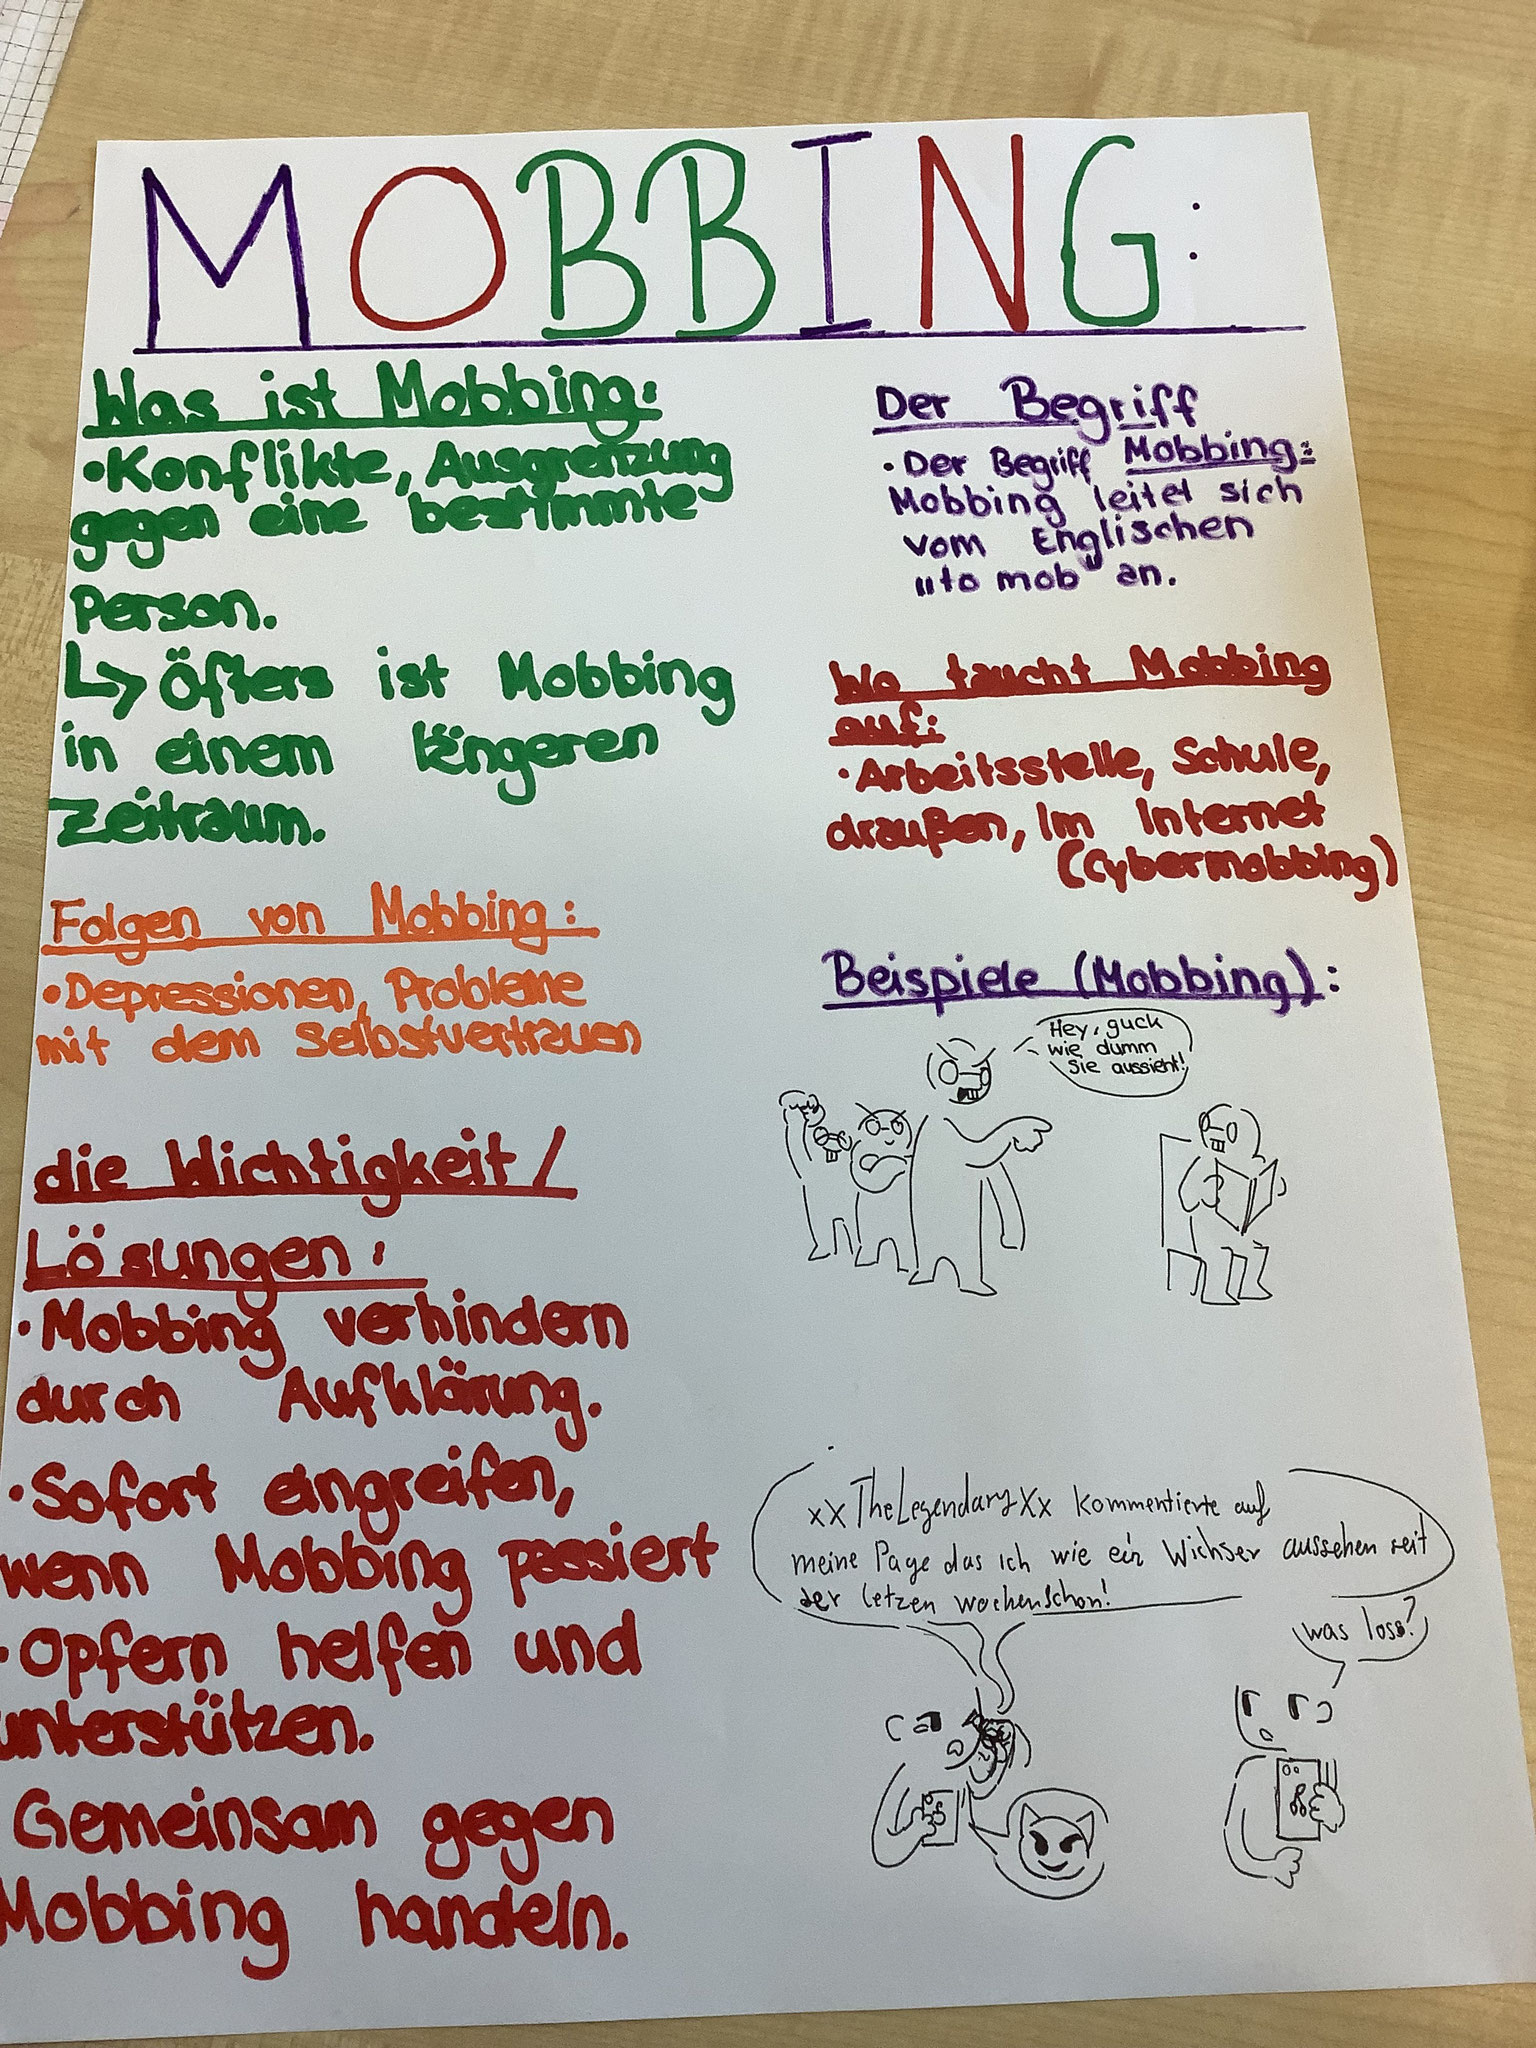 MOBBING:
Was ist Mobbing:
• Konflikte, Ausgrenzung
gegen eine bestimmte
Person.
↳ Öfters ist Mobbing
in einem längeren
Zeitraum.
Folgen von Mobbing:
• Depressionen, Probleme
mit dem Selbstvertrauen
die Wichtigkeit/
Lösungen:
• Mobbing verhindern
durch Aufklärung.
• Sofort eingreifen,
wenn Mobbing passiert
• Opfern helfen und
unterstützen.
Gemeinsam gegen
Mobbing handeln.
Der Begriff
• Der Begriff Mobbing:
Mobbing leitet sich
vom Englischen
„to mob" an.
Wo taucht Mobbing
auf:
• Arbeitsstelle, Schule,
draußen, Im Internet
(Cybermobbing)
Beispiele (Mobbing):
Hey, guck
wie dumm
sie aussieht!
xXTheLegendaryXx kommentierte auf
meine Page das ich wie ein Wichser aussehen seit
der letzen wochen schon!
was loss?